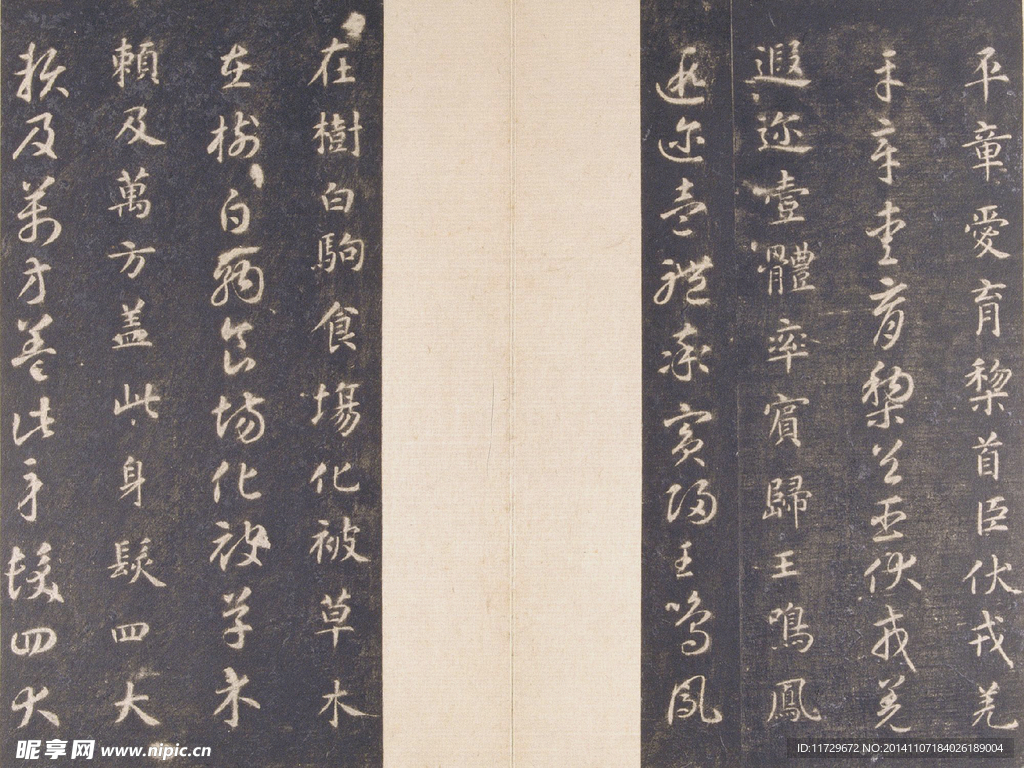 平章愛育黎首臣伏戎羌
平章愛育黎首臣伏戎羌
遐迩壹體率賓歸王鳴鳳
遐迩壹體率賓歸王鳴鳳
在樹白駒食塲化被草木
在樹白駒食場化被草木
賴及萬方盖此身髮四大
賴及萬方盖此身髮四大
昵享网 www.nipic.cn
ID:11729672 NO:20141107184026189004